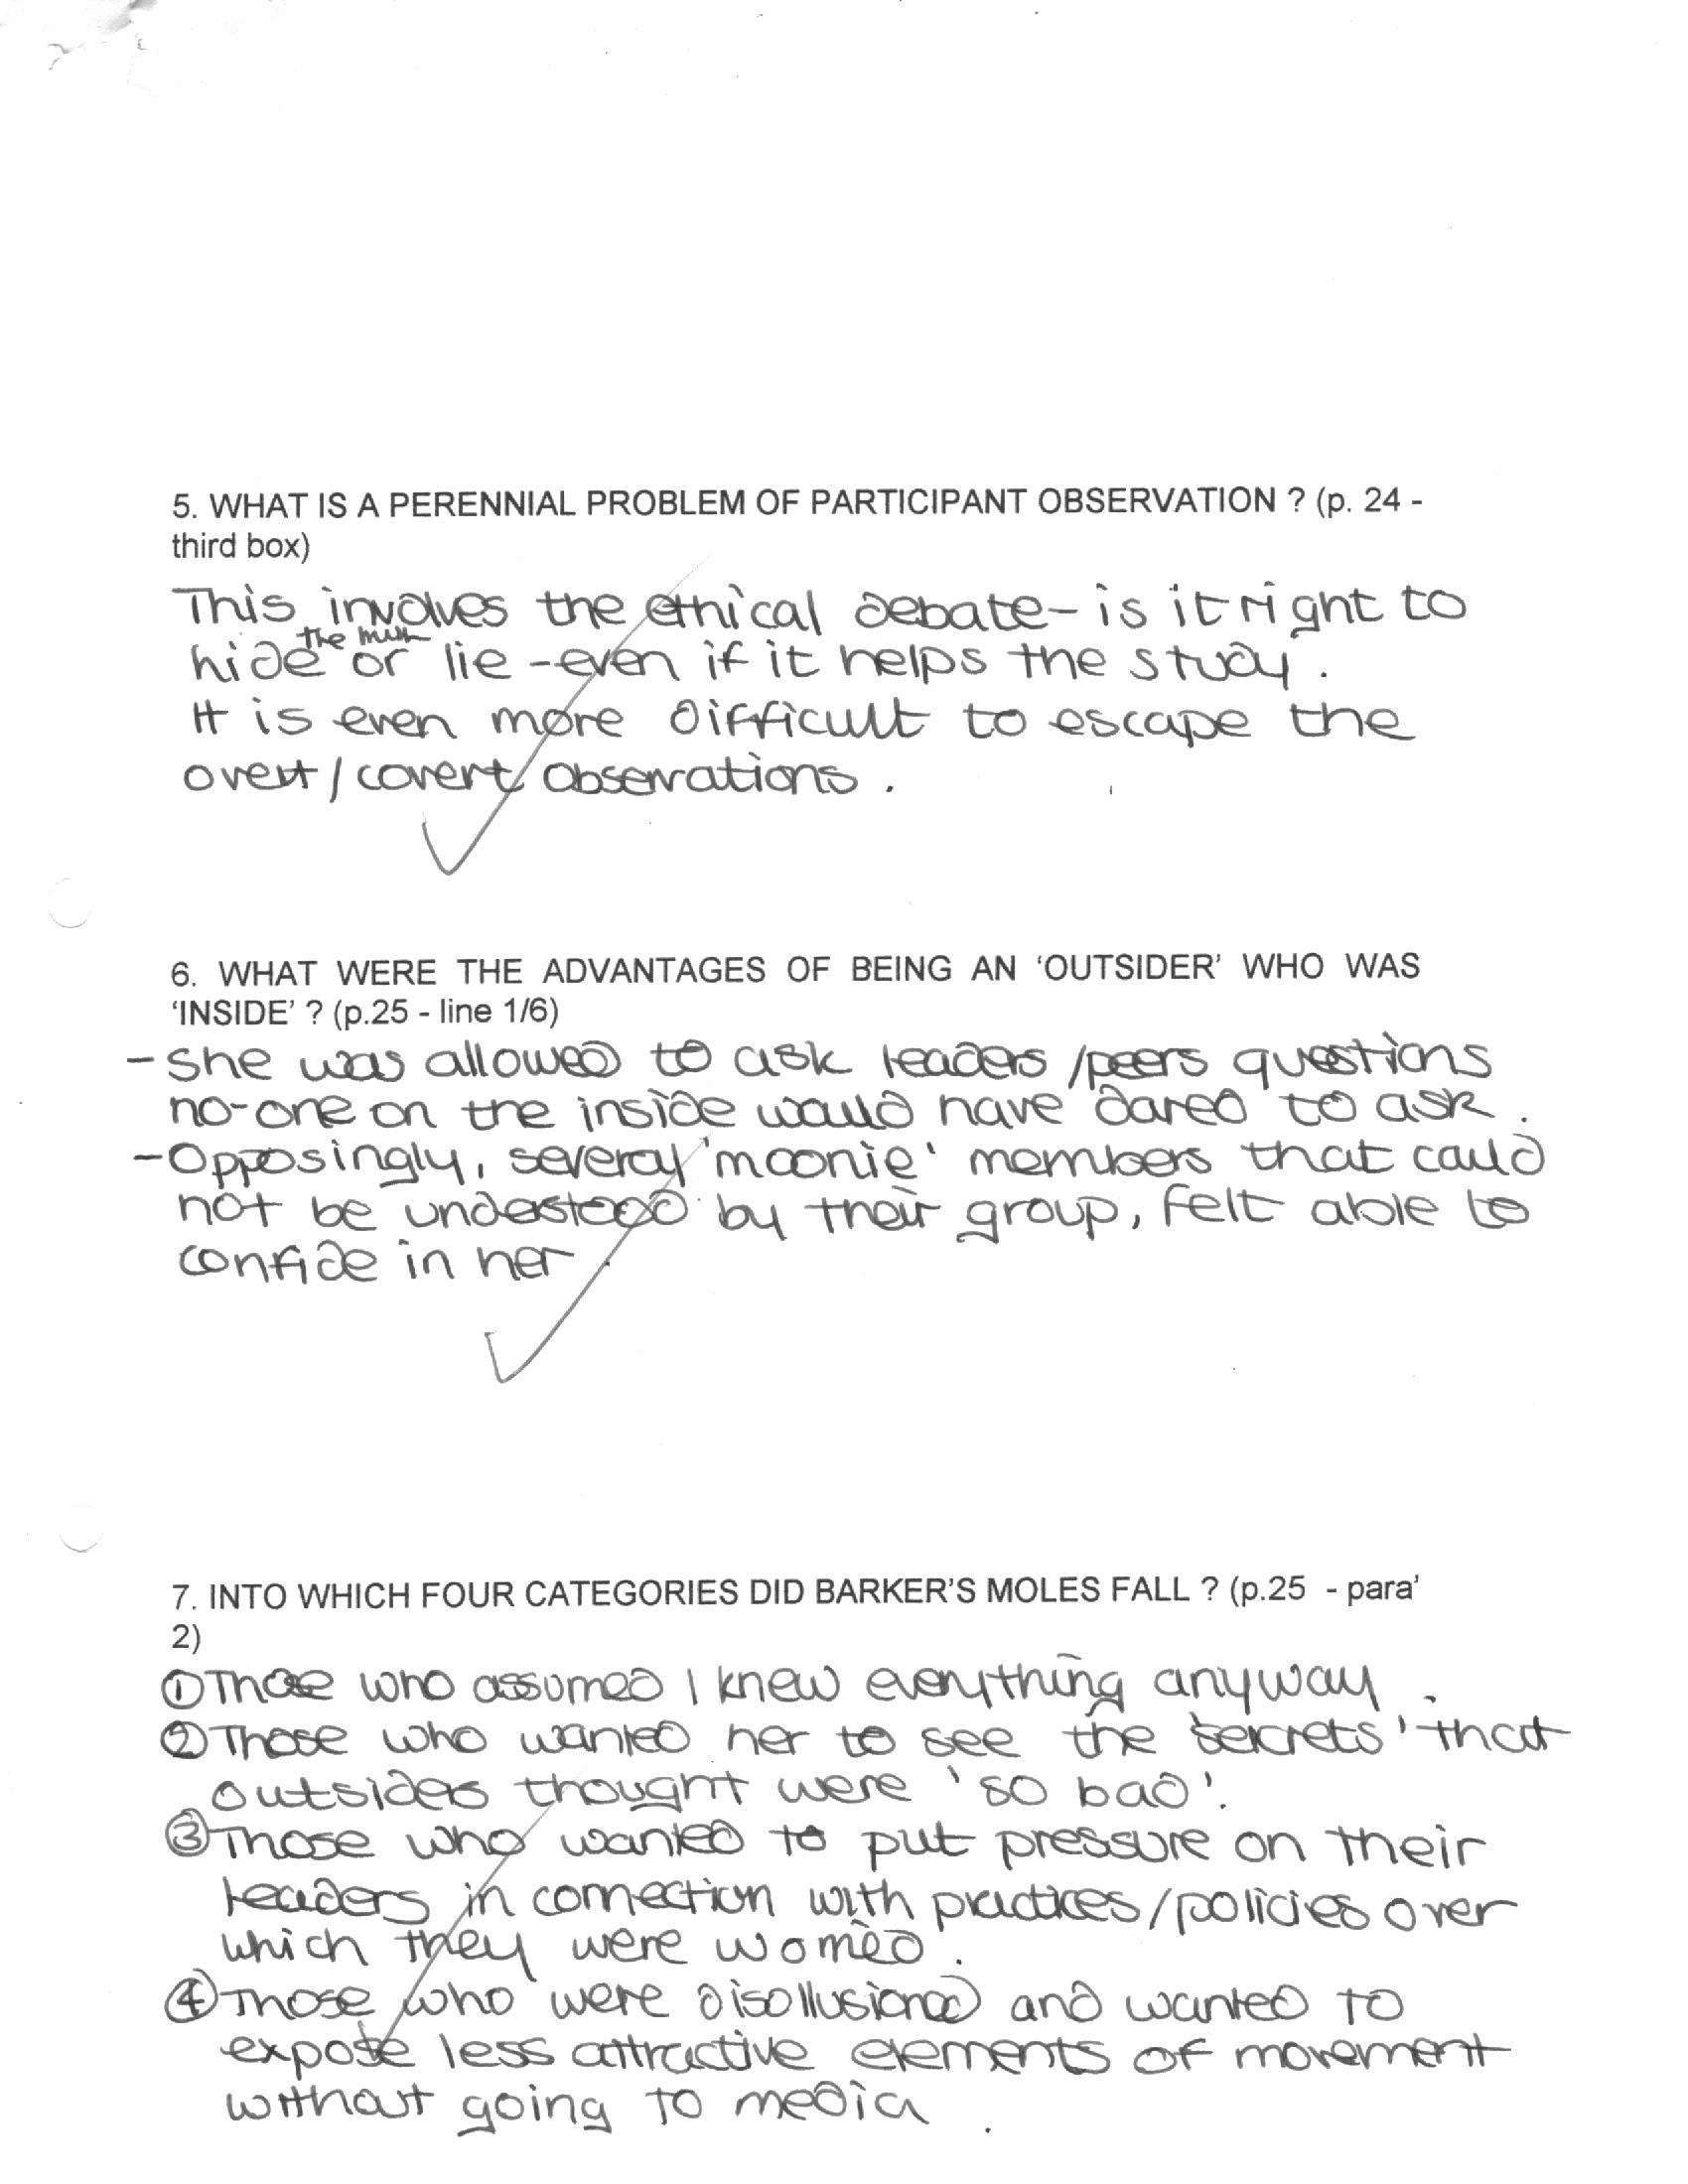 5. WHAT IS A PERENNIAL PROBLEM OF PARTICIPANT OBSERVATION ? (p. 24 -
third box)
This involves the ethical debate - is it right to
the truth
hide or lie - even if it helps the study.
It is even more difficult to escape the
overt / covert observations.
6. WHAT WERE THE ADVANTAGES OF BEING AN ‘OUTSIDER’ WHO WAS
‘INSIDE’ ? (p.25 - line 1/6)
- She was allowed to ask leaders / peers questions
no-one on the inside would have dared to ask.
- Opposingly, several 'moonie' members that could
not be understood by their group, felt able to
confide in her
7. INTO WHICH FOUR CATEGORIES DID BARKER’S MOLES FALL ? (p.25 - para’
2)
① Those who assumed I knew everything anyway.
② Those who wanted her to see the 'secrets' that
outsiders thought were 'so bad'.
③ Those who wanted to put pressure on their
leaders in connection with practices / policies over
which they were worried.
④ Those who were disollusioned and wanted to
expose less attractive elements of movement
without going to media.